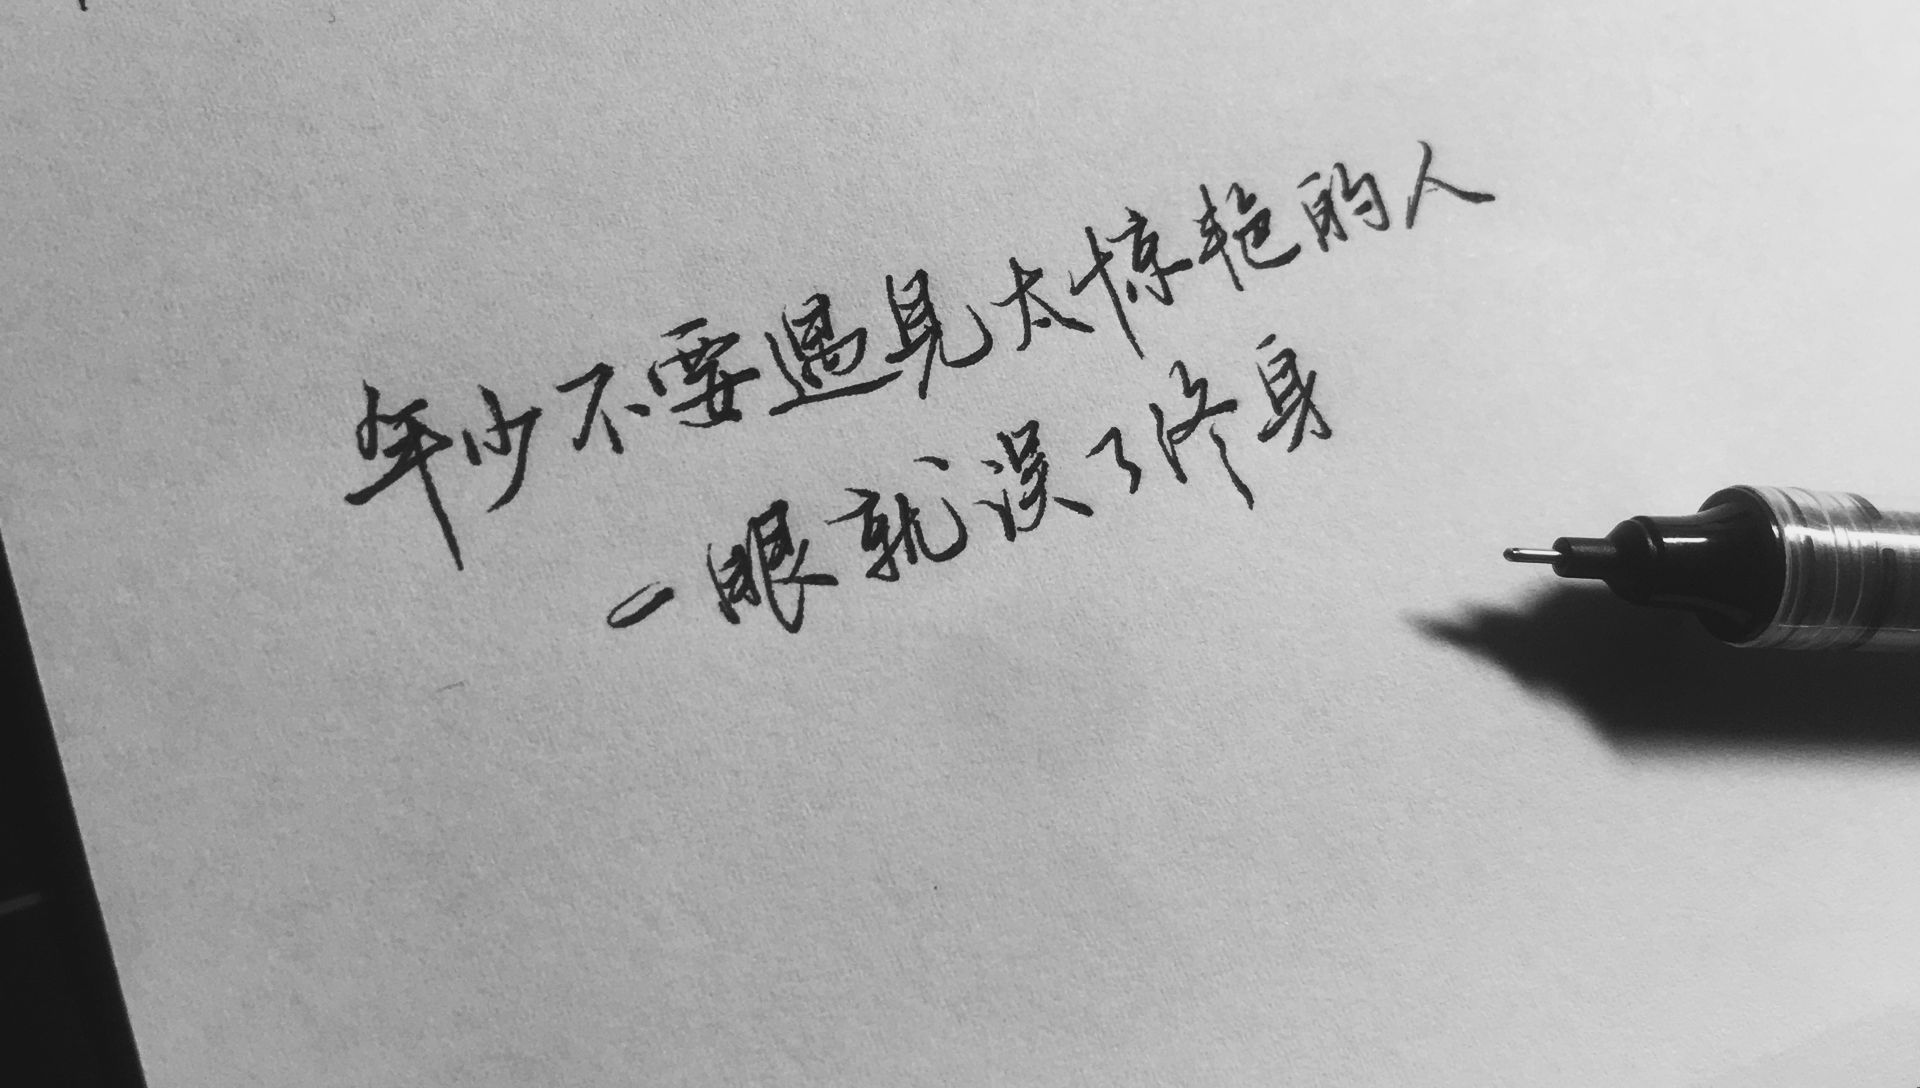 年少不要遇見太惊艳的人
一眼就误了终身